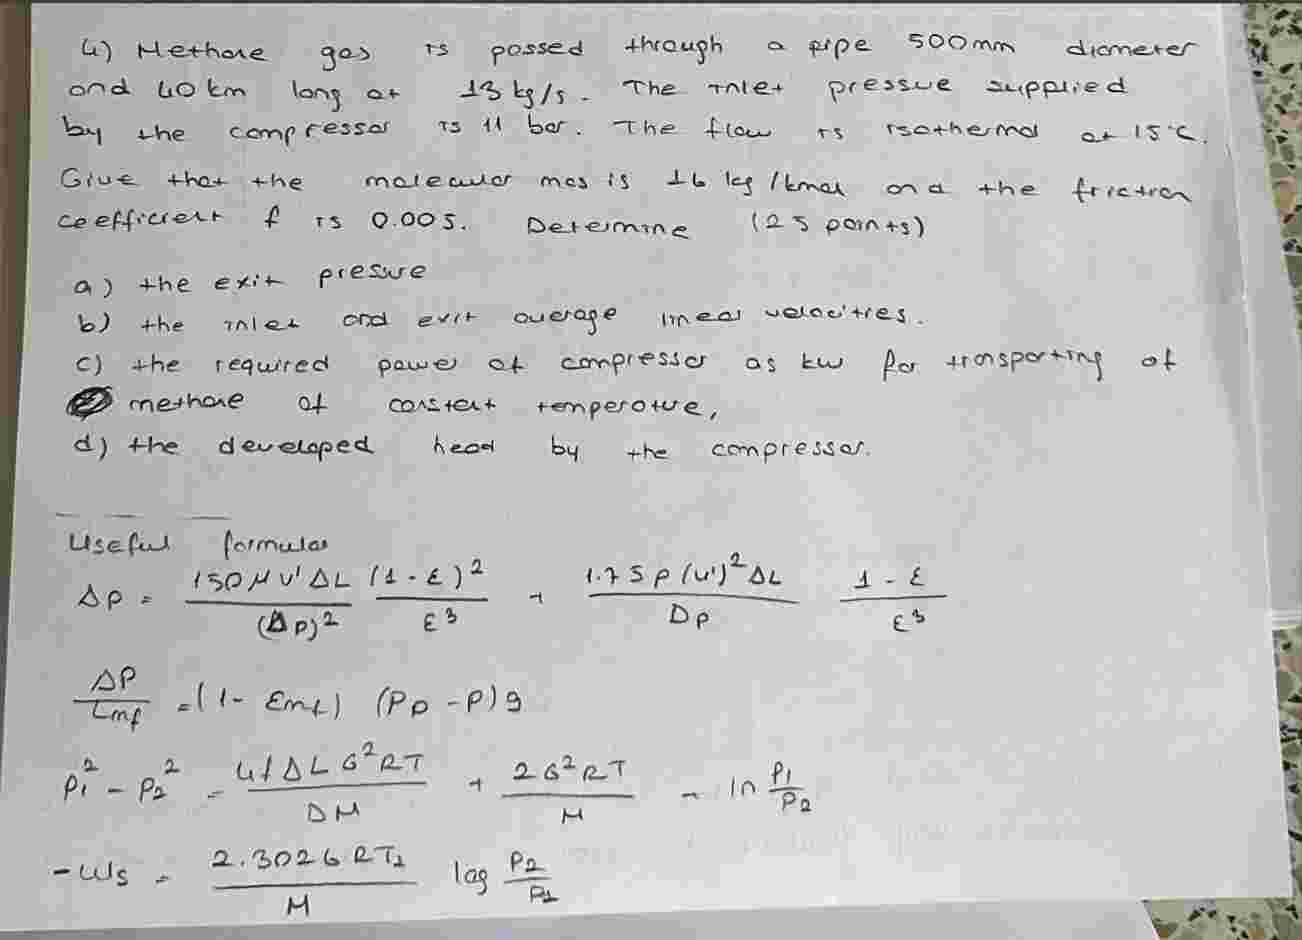 4) Methane gas is passed through a pipe 500mm diameter
and 40 km long at 13 kg/s. The inlet pressue supplied
by the compressor is 11 bar. The flow is isothermal at 15°C.
Give that the molecular mas is 16 kg/kmol and the friction
coefficient f is 0.005. Determine (25 points)
a) the exit presure
b) the inlet and exit average linear velocities.
c) the required power of compressor as kw for transporting of
methane at constant temperature,
d) the developed head by the compressor.
Useful formulas
Δp = 150 μ v' ΔL / (Δp)² (1-ε)² / ε³ + 1.75 ρ (u')² ΔL / Dp 1-ε / ε³
ΔP / Lmf = (1- Emf) (Pp - P) g
P₁² - P₂² = 4f ΔL G² RT / DM + 2G² RT / M - ln P₁ / P₂
-Ws = 2.3026 RT₁ / M log P₂ / P₁